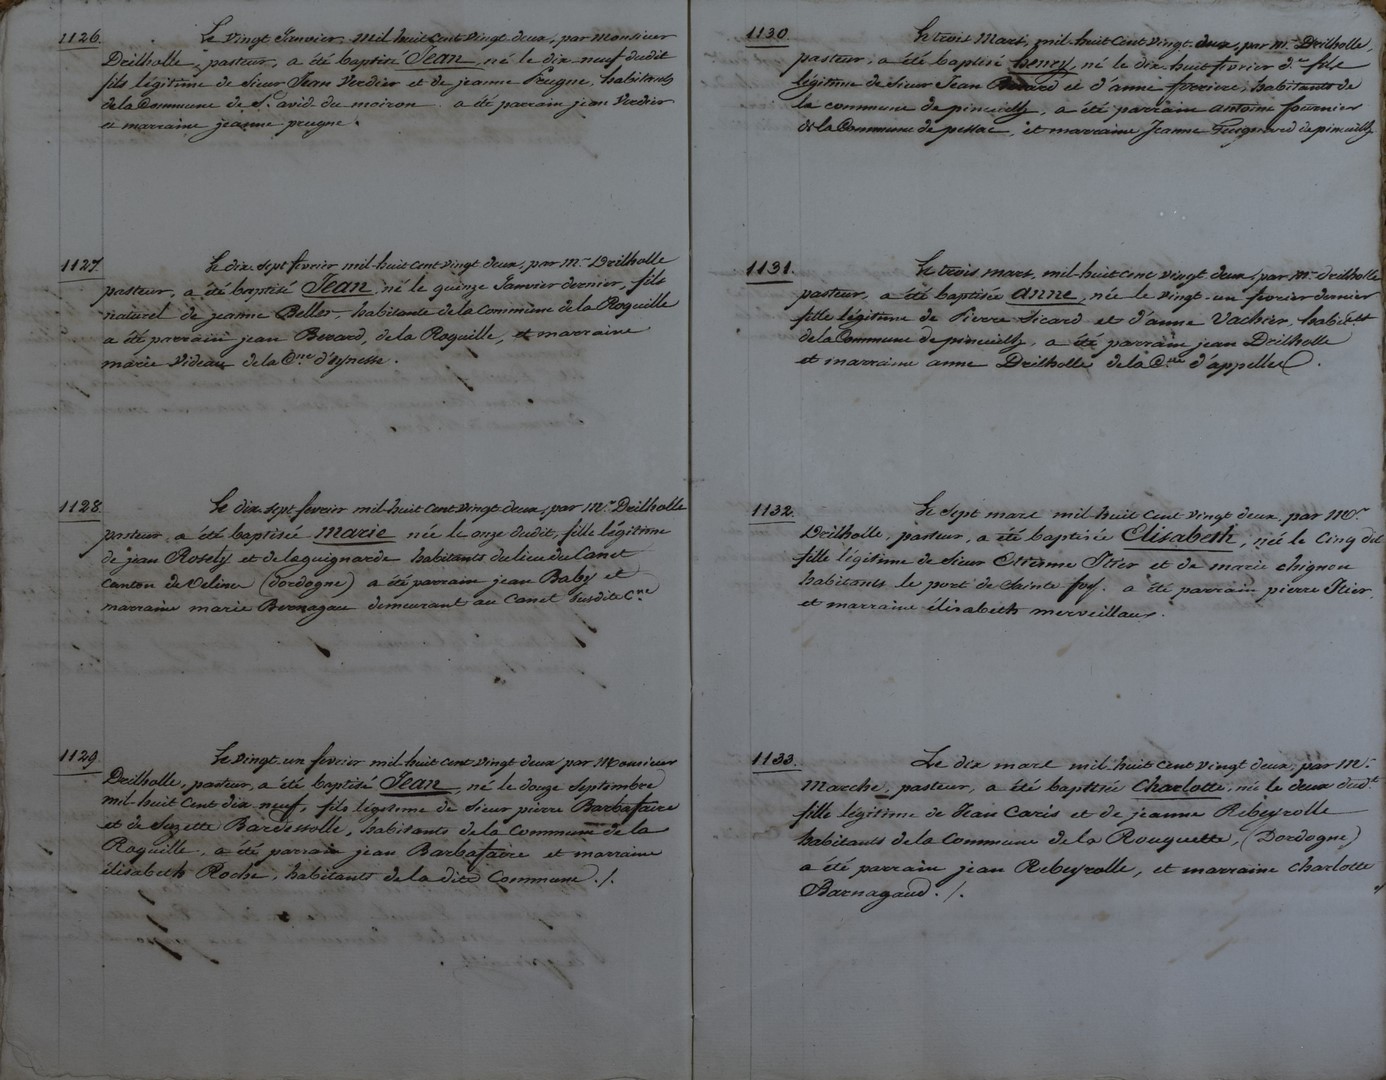 1126. Le vingt Janvier, mil huit cent vingt deux, par Monsieur
Drilholle, pasteur, a été baptisé Jean, né le dix neuf dudit
fils légitime de Sieur Jean Verdier et de jeanne Preugne, habitants
de la Commune de St. avid du moiron. a été parrain jean Verdier
et marraine jeanne preugne.
1127. Le dix sept fevrier mil-huit cent vingt deux, par Mr. Drilholle
pasteur, a été baptisé Jean, né le quinze Janvier dernier, fils
naturel de jeanne Beller, habitante de la Commune de la Roquille
a été parrain jean Berard, de la Roquille, et marraine
marie Videau de la Cne d'eynesse.
1128. Le dix sept fevrier mil-huit cent vingt deux, par Mr. Drilholle
pasteur, a été baptisée marie née le onze dudit, fille légitime
de jean Rosely et de laguignarde habitants du lieu du Canet
Canton de Veline (dordogne) a été parrain jean Baby et
marraine marie Bernagau demeurant au Canet susdite Cne
1129. Le vingt un fevrier mil-huit cent vingt deux par Monsieur
Drilholle, pasteur, a été baptisé Jean, né le douze Septembre
mil-huit cent dix neuf, fils légitime de Sieur pierre Barbafaire
et de Suzette Bardessolle, habitants de la Commune de la
Roquille, a été parrain jean Barbafaire et marraine
élisabeth Roche, habitants de la dite Commune ./.
1130. Le trois Mars, mil-huit cent vingt deux, par Mr. Drilholle,
pasteur, a été baptisé henry, né le dix-huit fevrier dr. fils
légitime de Sieur Jean et d'anne ferriere, habitants de
la commune de pineuilh, a été parrain antoine fournier
de la Commune de pessac, et marraine Jeanne de pineuilh
1131. Le trois mars, mil-huit cent vingt deux, par Mr. drilholle
pasteur, a été baptisée anne, née le vingt-un fevrier dernier
fille légitime de Pierre Sicard et d'anne Vachier, habitts
de la Commune de pineuilh, a été parrain jean Drilholle
et marraine anne Drilholle de la Cne d'appelles.
1132. Le sept mars mil-huit cent vingt deux par Mr.
Drilholle, pasteur, a été baptisée Elisabeth, née le cinq dit
fille légitime de Sieur Etienne Itier et de marie chignon
habitants le port de Sainte foy. a été parrain pierre Itier,
et marraine élisabeth merveillaux.
1133. Le dix mars mil-huit cent vingt deux, par Mr.
Marche, pasteur, a été baptisée Charlotte, née le deux dudt
fille légitime de Jean Caris et de jeanne Rebeyrolle
habitants de la Commune de la Rouquette, (Dordogne)
a été parrain jean Rebeyrolle, et marraine charlotte
Barnagaud ./.